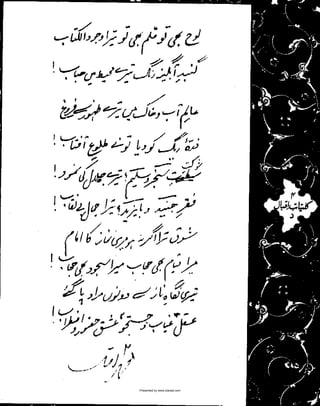 لوح بھی تو قلم بھی تو تیرا وجود الکتاب
گنبد آبگینہ رنگ تیرے محیط میں حباب!
عالم آب و خاک میں تیرے ظہور سے فروغ
ذرۂ ریگ کو دیا تو نے طلوع آفتاب!
شوکت سنجر و سلیم تیرے جلال کی نمود!
فقر جنید و بایزید تیرا جمال بے نقاب!
شوق ترا اگر نہ ہو میری نماز کا امام
میرا قیام بھی حجاب میرا سجود بھی حجاب!
تیری نگاہ ناز سے دونوں مراد پا گئے
عقل غیاب و جستجو عشق حضور و اضطراب!
کلیات اقبال
Presented by www.ziaraat.com